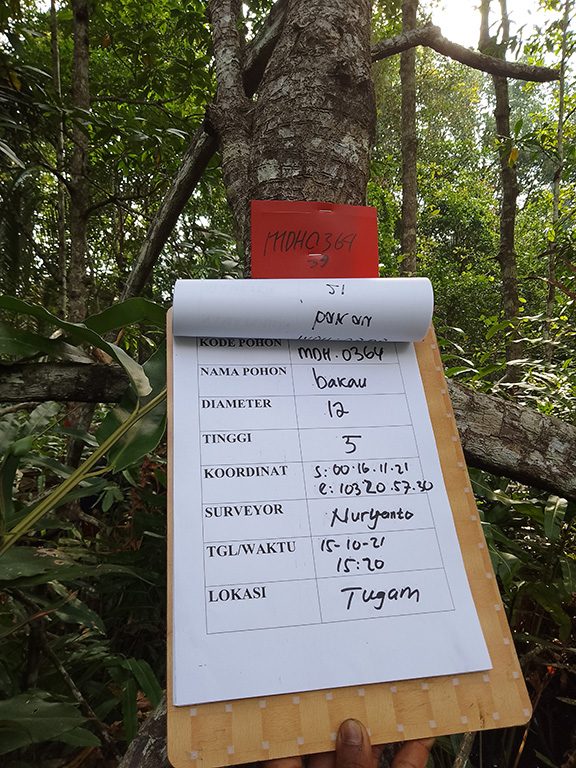 MDH0364
JI
pakan
KODE POHON MDH.0364
NAMA POHON bakau
DIAMETER 12
TINGGI 5
KOORDINAT S: 00.16.11.21
e: 103 20.57.30
SURVEYOR Nuryanto
TGL/WAKTU 15-10-21
15:20
LOKASI Tugam